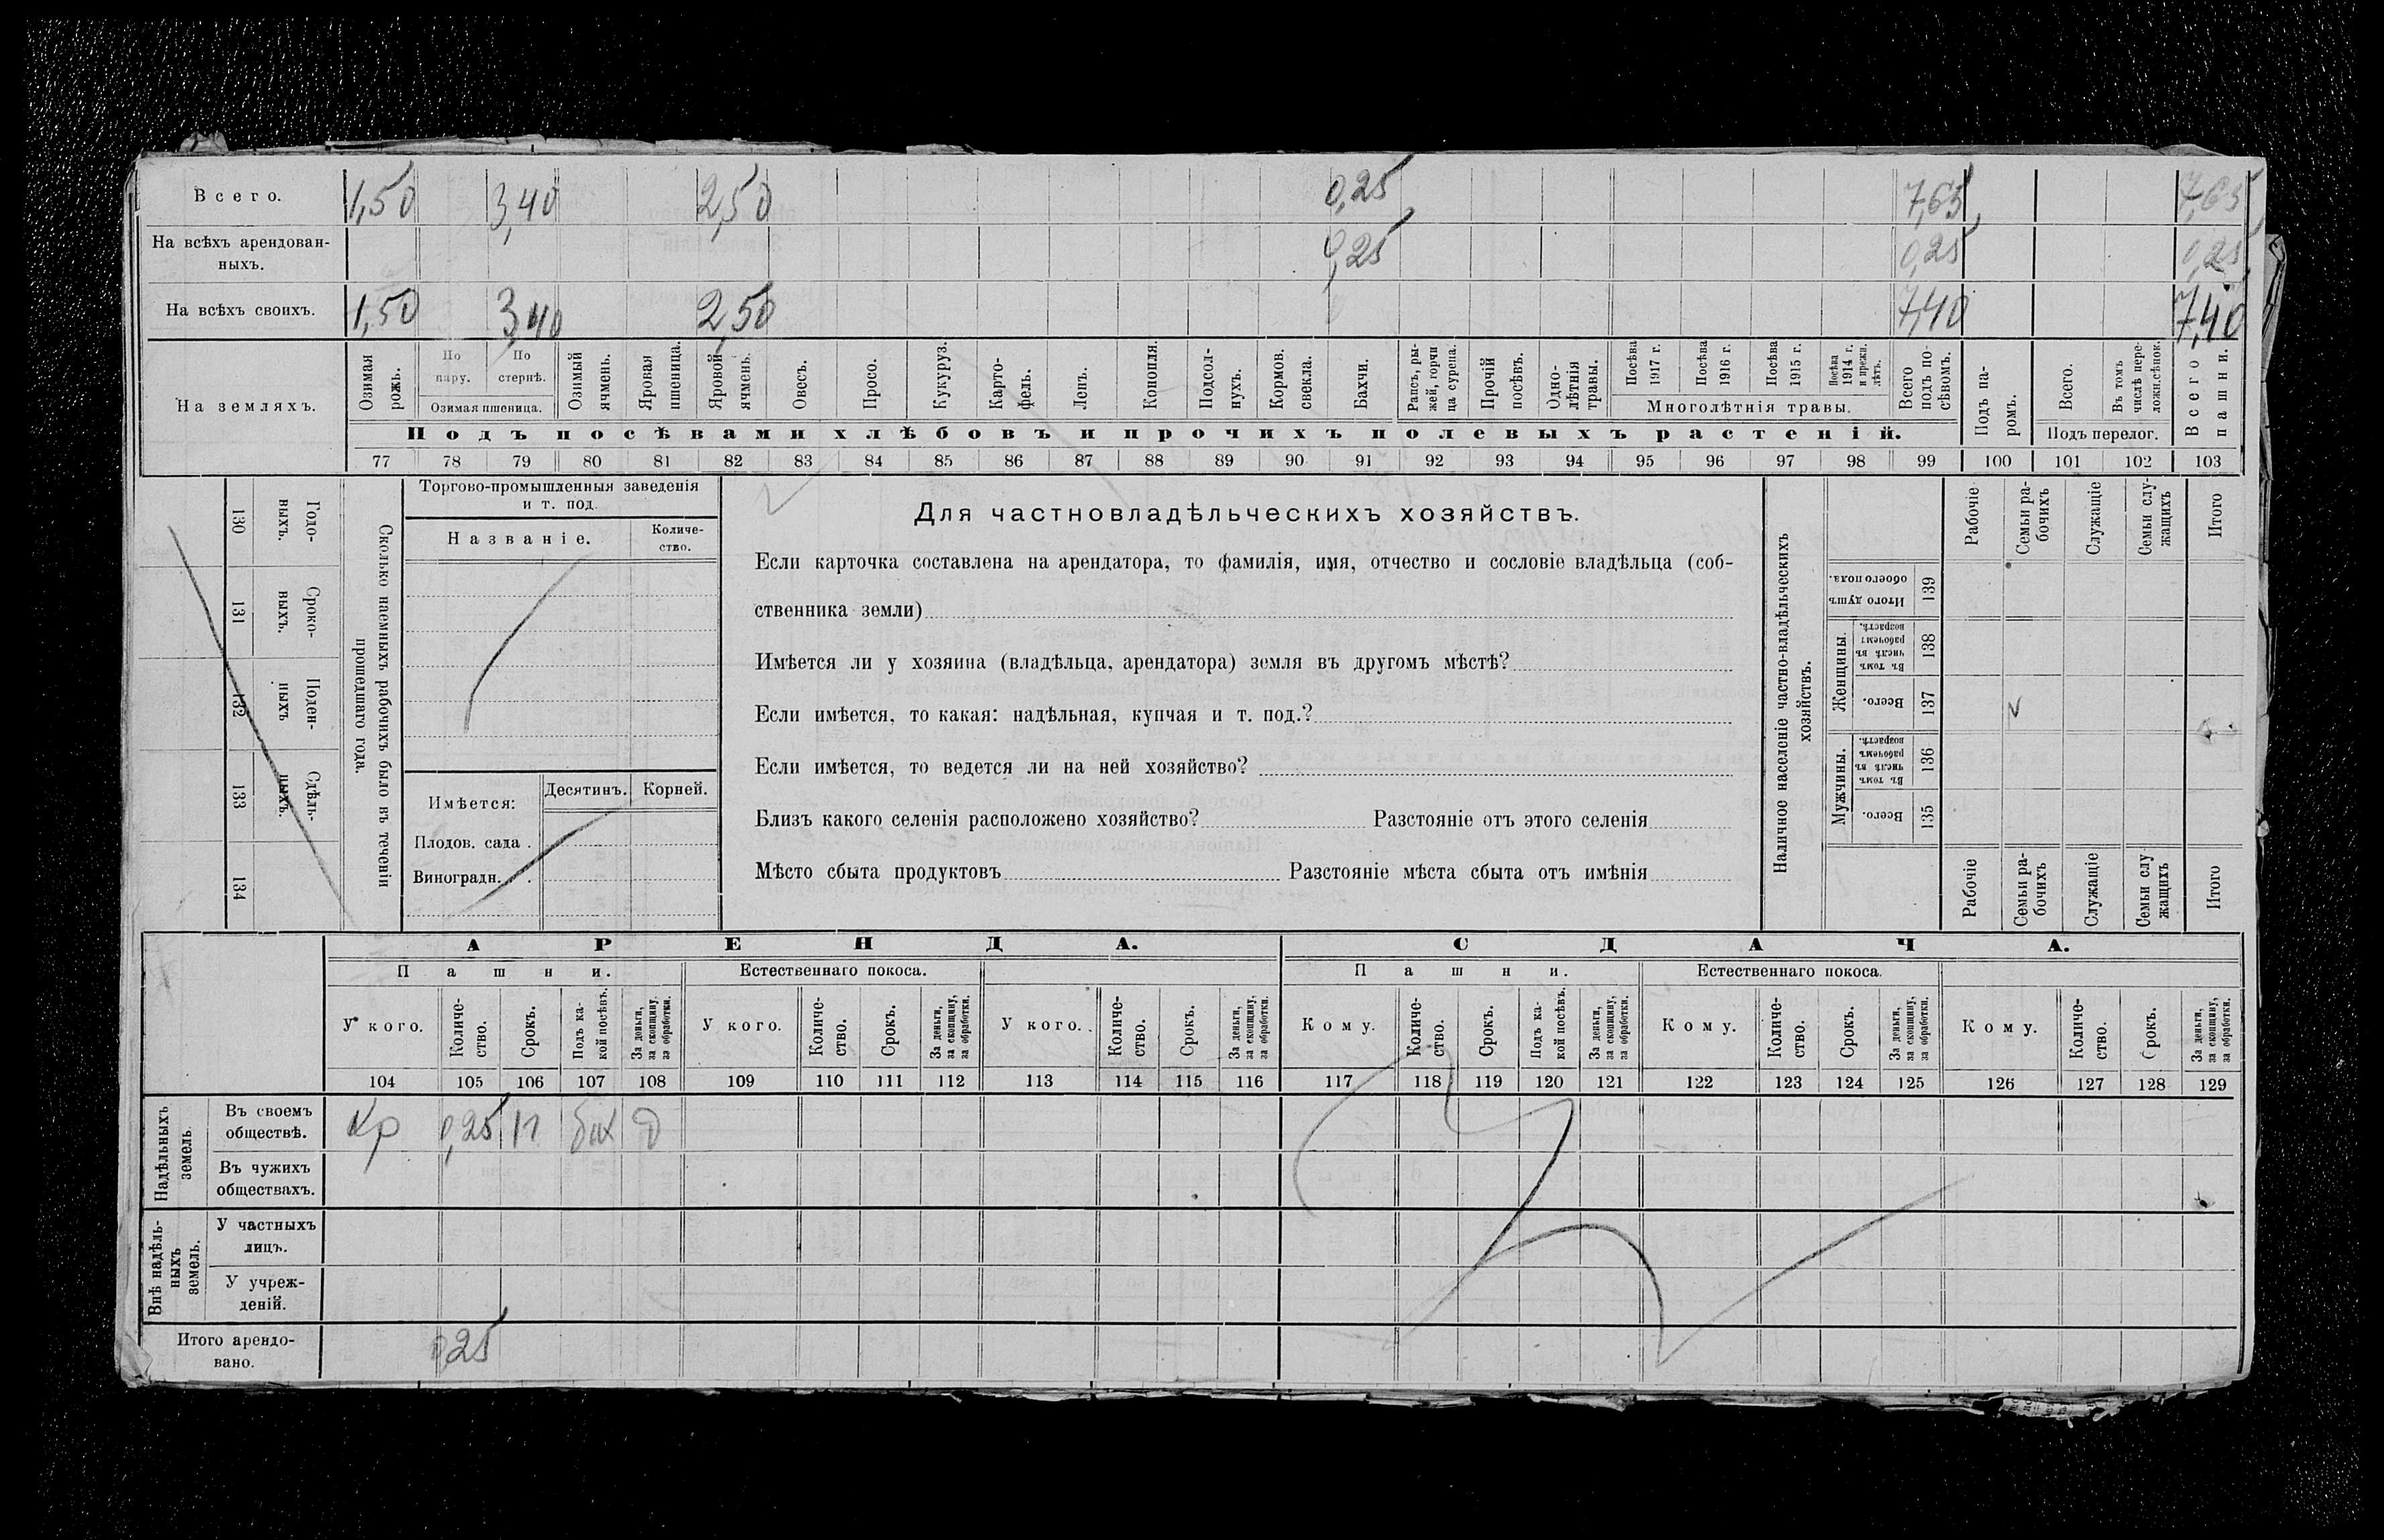 Всего. 1,50 3,40 2,50 0,25 7,65 7,65
На всѣхъ арендован-
ныхъ. 0,25 0,25 0,25
На всѣхъ своихъ. 1,50 3,40 2,50 7,40 7,40
На земляхъ.
Озимая рожь.
По пару.
По стернѣ.
Озимая пшеница.
Озимый ячмень.
Яровая пшеница.
Яровой ячмень.
Овесъ.
Просо.
Кукуруз.
Карто-
фель.
Ленъ.
Конопля.
Подсол-
нухъ.
Кормов.
свекла.
Бахчи.
Рапсъ, ры-
жей, горчи
ца сурепа.
Прочій
посѣвъ.
Одно-
лѣтнія
травы.
Посѣва
1917 г.
Посѣва
1916 г.
Посѣва
1915 г.
Посѣва
1914 г.
и прежн.
лѣтъ.
Многолѣтнія травы.
Всего
подъ по-
сѣвомъ.
Подъ па-
ромъ.
Всего.
Въ томъ
числѣ пере-
ложн.сѣнок.
Подъ перелог.
Всего
пашни.
Подъ посѣвами хлѣбовъ и прочихъ полевыхъ растеній.
77 78 79 80 81 82 83 84 85 86 87 88 89 90 91 92 93 94 95 96 97 98 99 100 101 102 103
Голо-
ныхъ.
130
Сроко-
ныхъ.
131
Поден-
ныхъ
132
Сдѣль-
ныхъ.
133
134
Сколько наемныхъ рабочихъ было въ теченіи
прошедшаго года.
Торгово-промышленныя заведенія
и т. под.
Названіе.
Количе-
ство.
Имѣется:
Десятинъ. Корней.
Плодов. сада .
Виноградн. .
Для частновладѣльческихъ хозяйствъ.
Если карточка составлена на арендатора, то фамилія, имя, отчество и сословіе владѣльца (соб-
ственника земли)
Имѣется ли у хозяина (владѣльца, арендатора) земля въ другомъ мѣстѣ?
Если имѣется, то какая: надѣльная, купчая и т. под.?
Если имѣется, то ведется ли на ней хозяйство?
Близъ какого селенія расположено хозяйство? Разстояніе отъ этого селенія
Мѣсто сбыта продуктовъ Разстояніе мѣста сбыта отъ имѣнія
Наличное населеніе частно-владѣльческихъ
хозяйствъ.
Рабочіе
Семьи ра-
бочихъ
Служащіе
Семьи слу-
жащихъ
Итого
Итого душъ
обоего пола.
139
Женщины.
Въ томъ
числѣ въ
рабочемъ
возрастѣ.
138
Всего.
137
Мужчины.
Въ томъ
числѣ въ
рабочемъ
возрастѣ.
136
Всего.
135
Рабочіе
Семьи ра-
бочихъ
Служащіе
Семьи слу
жащихъ
Итого
АРЕНДА. СДАЧА.
Пашни. Естественнаго покоса. Пашни. Естественнаго покоса.
У кого.
Количе-
ство.
Срокъ.
Подъ ка-
кой посѣвъ.
За деньги,
за скопщину,
за обработки.
У кого.
Количе-
ство.
Срокъ.
За деньги,
за скопщину,
за обработки.
У кого.
Количе-
ство.
Срокъ.
За деньги,
за скопщину,
за обработки.
Кому.
Количе-
ство.
Срокъ.
Подъ ка-
кой посѣвъ.
За деньги,
за скопщину,
за обработки.
Кому.
Количе-
ство.
Срокъ.
За деньги,
за скопщину,
за обработки.
Кому.
Количе-
ство.
Срокъ.
За деньги,
за скопщину,
за обработки.
104 105 106 107 108 109 110 111 112 113 114 115 116 117 118 119 120 121 122 123 124 125 126 127 128 129
Надѣльныхъ
земель
Въ своемъ
обществѣ. Кр 0,25 бах д
Въ чужихъ
обществахъ.
Внѣ надѣль-
ныхъ
земель.
У частныхъ
лицъ.
У учреж-
деній.
Итого арендо-
вано. 0,25